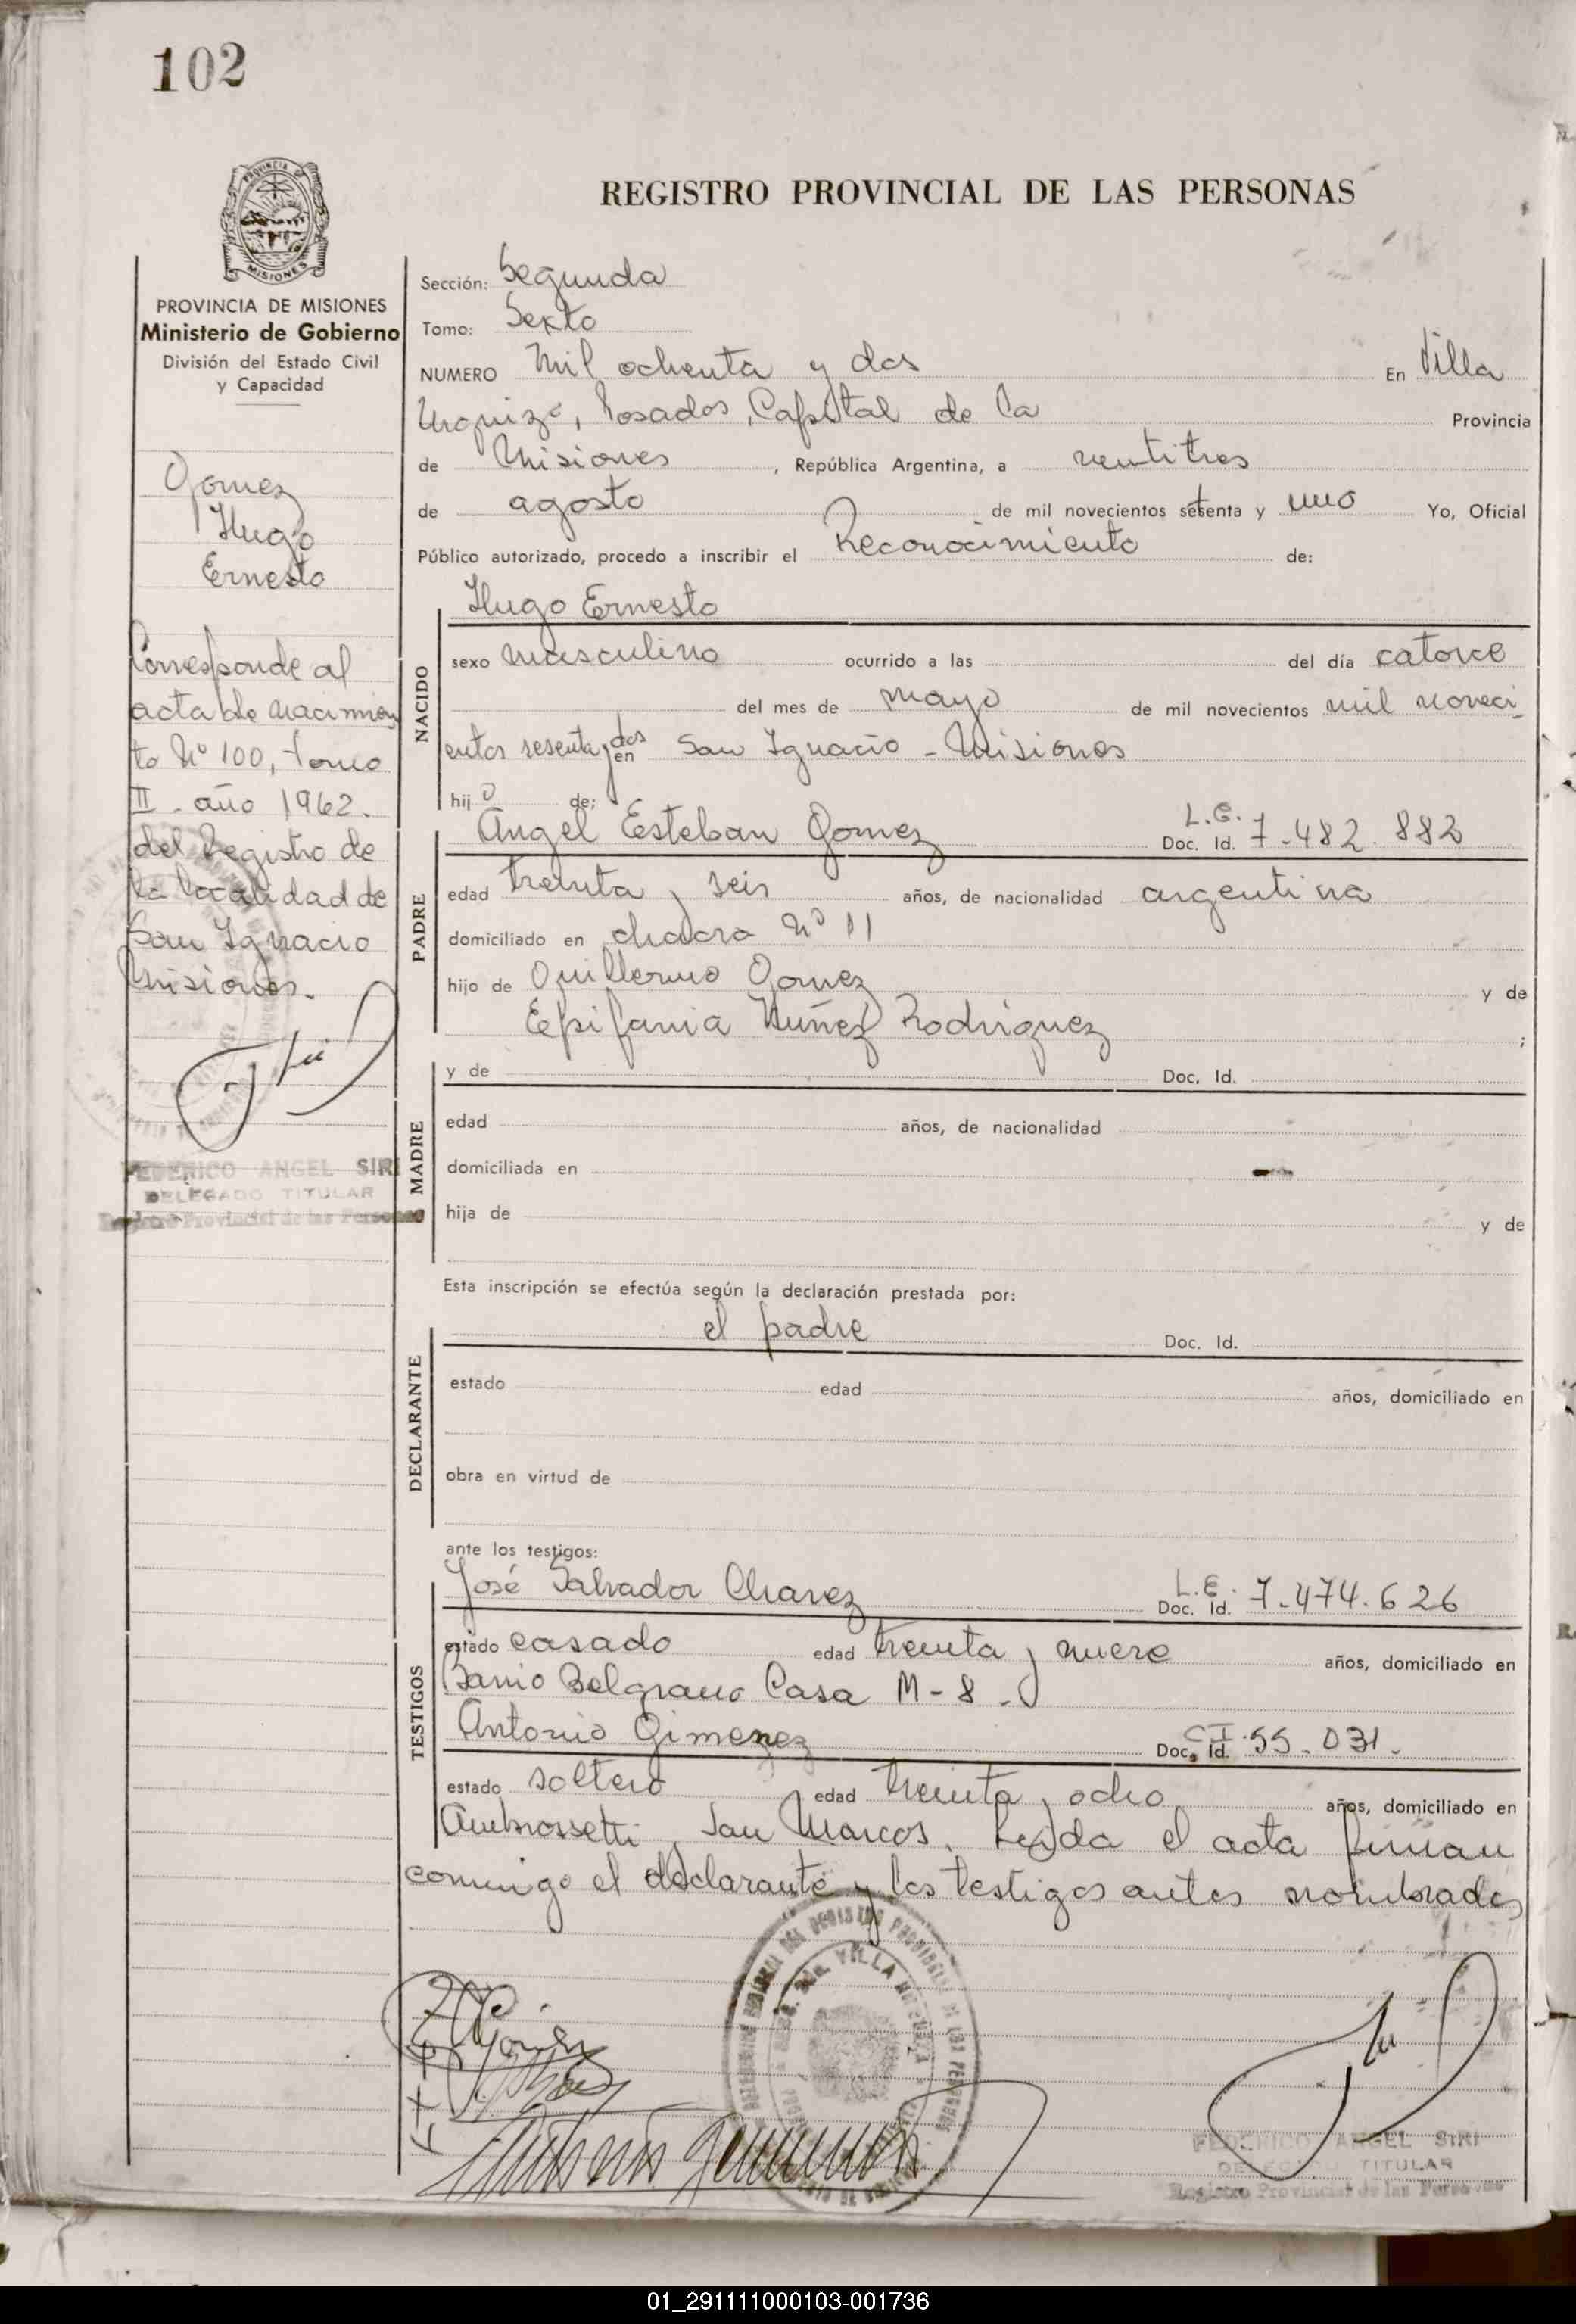 102
PROVINCIA DE
MISIONES
REGISTRO PROVINCIAL DE LAS PERSONAS
PROVINCIA DE MISIONES
Ministerio de Gobierno
División del Estado Civil
y Capacidad
Gomez
Hugo
Ernesto
Corresponde al
acta de nacimien
to Nº 100, tomo
II - año 1962.
del Registro de
la localidad de
San Ignacio
Misiones.
FEDERICO ANGEL SIRI
DELEGADO TITULAR
Registro Provincial de las Personas
Sección: Segunda
Tomo: Sexto
NUMERO Mil ochenta y dos En Villa
Urquiza, Posadas, Capital de la Provincia
de Misiones, República Argentina, a veintitres
de agosto de mil novecientos setenta y uno Yo, Oficial
Público autorizado, procedo a inscribir el Reconocimiento de:
NACIDO
Hugo Ernesto
sexo masculino ocurrido a las del día catorce
del mes de mayo de mil novecientos mil noveci
entos sesenta y dos en San Ignacio - Misiones
hijo de:
PADRE
Angel Esteban Gomez L.E. Doc. Id. 7.482.882
edad treinta y seis años, de nacionalidad argentina
domiciliado en chacra Nº 11
hijo de Guillermo Gomez y de
Epifania Nuñez Rodriguez ;
MADRE
y de Doc. Id.
edad años, de nacionalidad
domiciliada en
hija de y de
Esta inscripción se efectúa según la declaración prestada por:
DECLARANTE
el padre Doc. Id.
estado edad años, domiciliado en
obra en virtud de
ante los testigos:
TESTIGOS
José Salvador Chavez L.E. Doc. Id. 7.474.626
estado casado edad treinta y nueve años, domiciliado en
Barrio Belgrano Casa M-8.
Antonio Gimenez C.I. Doc. Id. 55.031.
estado soltero edad treinta y ocho años, domiciliado en
Ambrossetti, San Marcos. Leyda el acta firman
conmigo el declarante y los testigos antes nombrados
FEDERICO ANGEL SIRI
DELEGADO TITULAR
Registro Provincial de las Personas
01_291111000103-001736